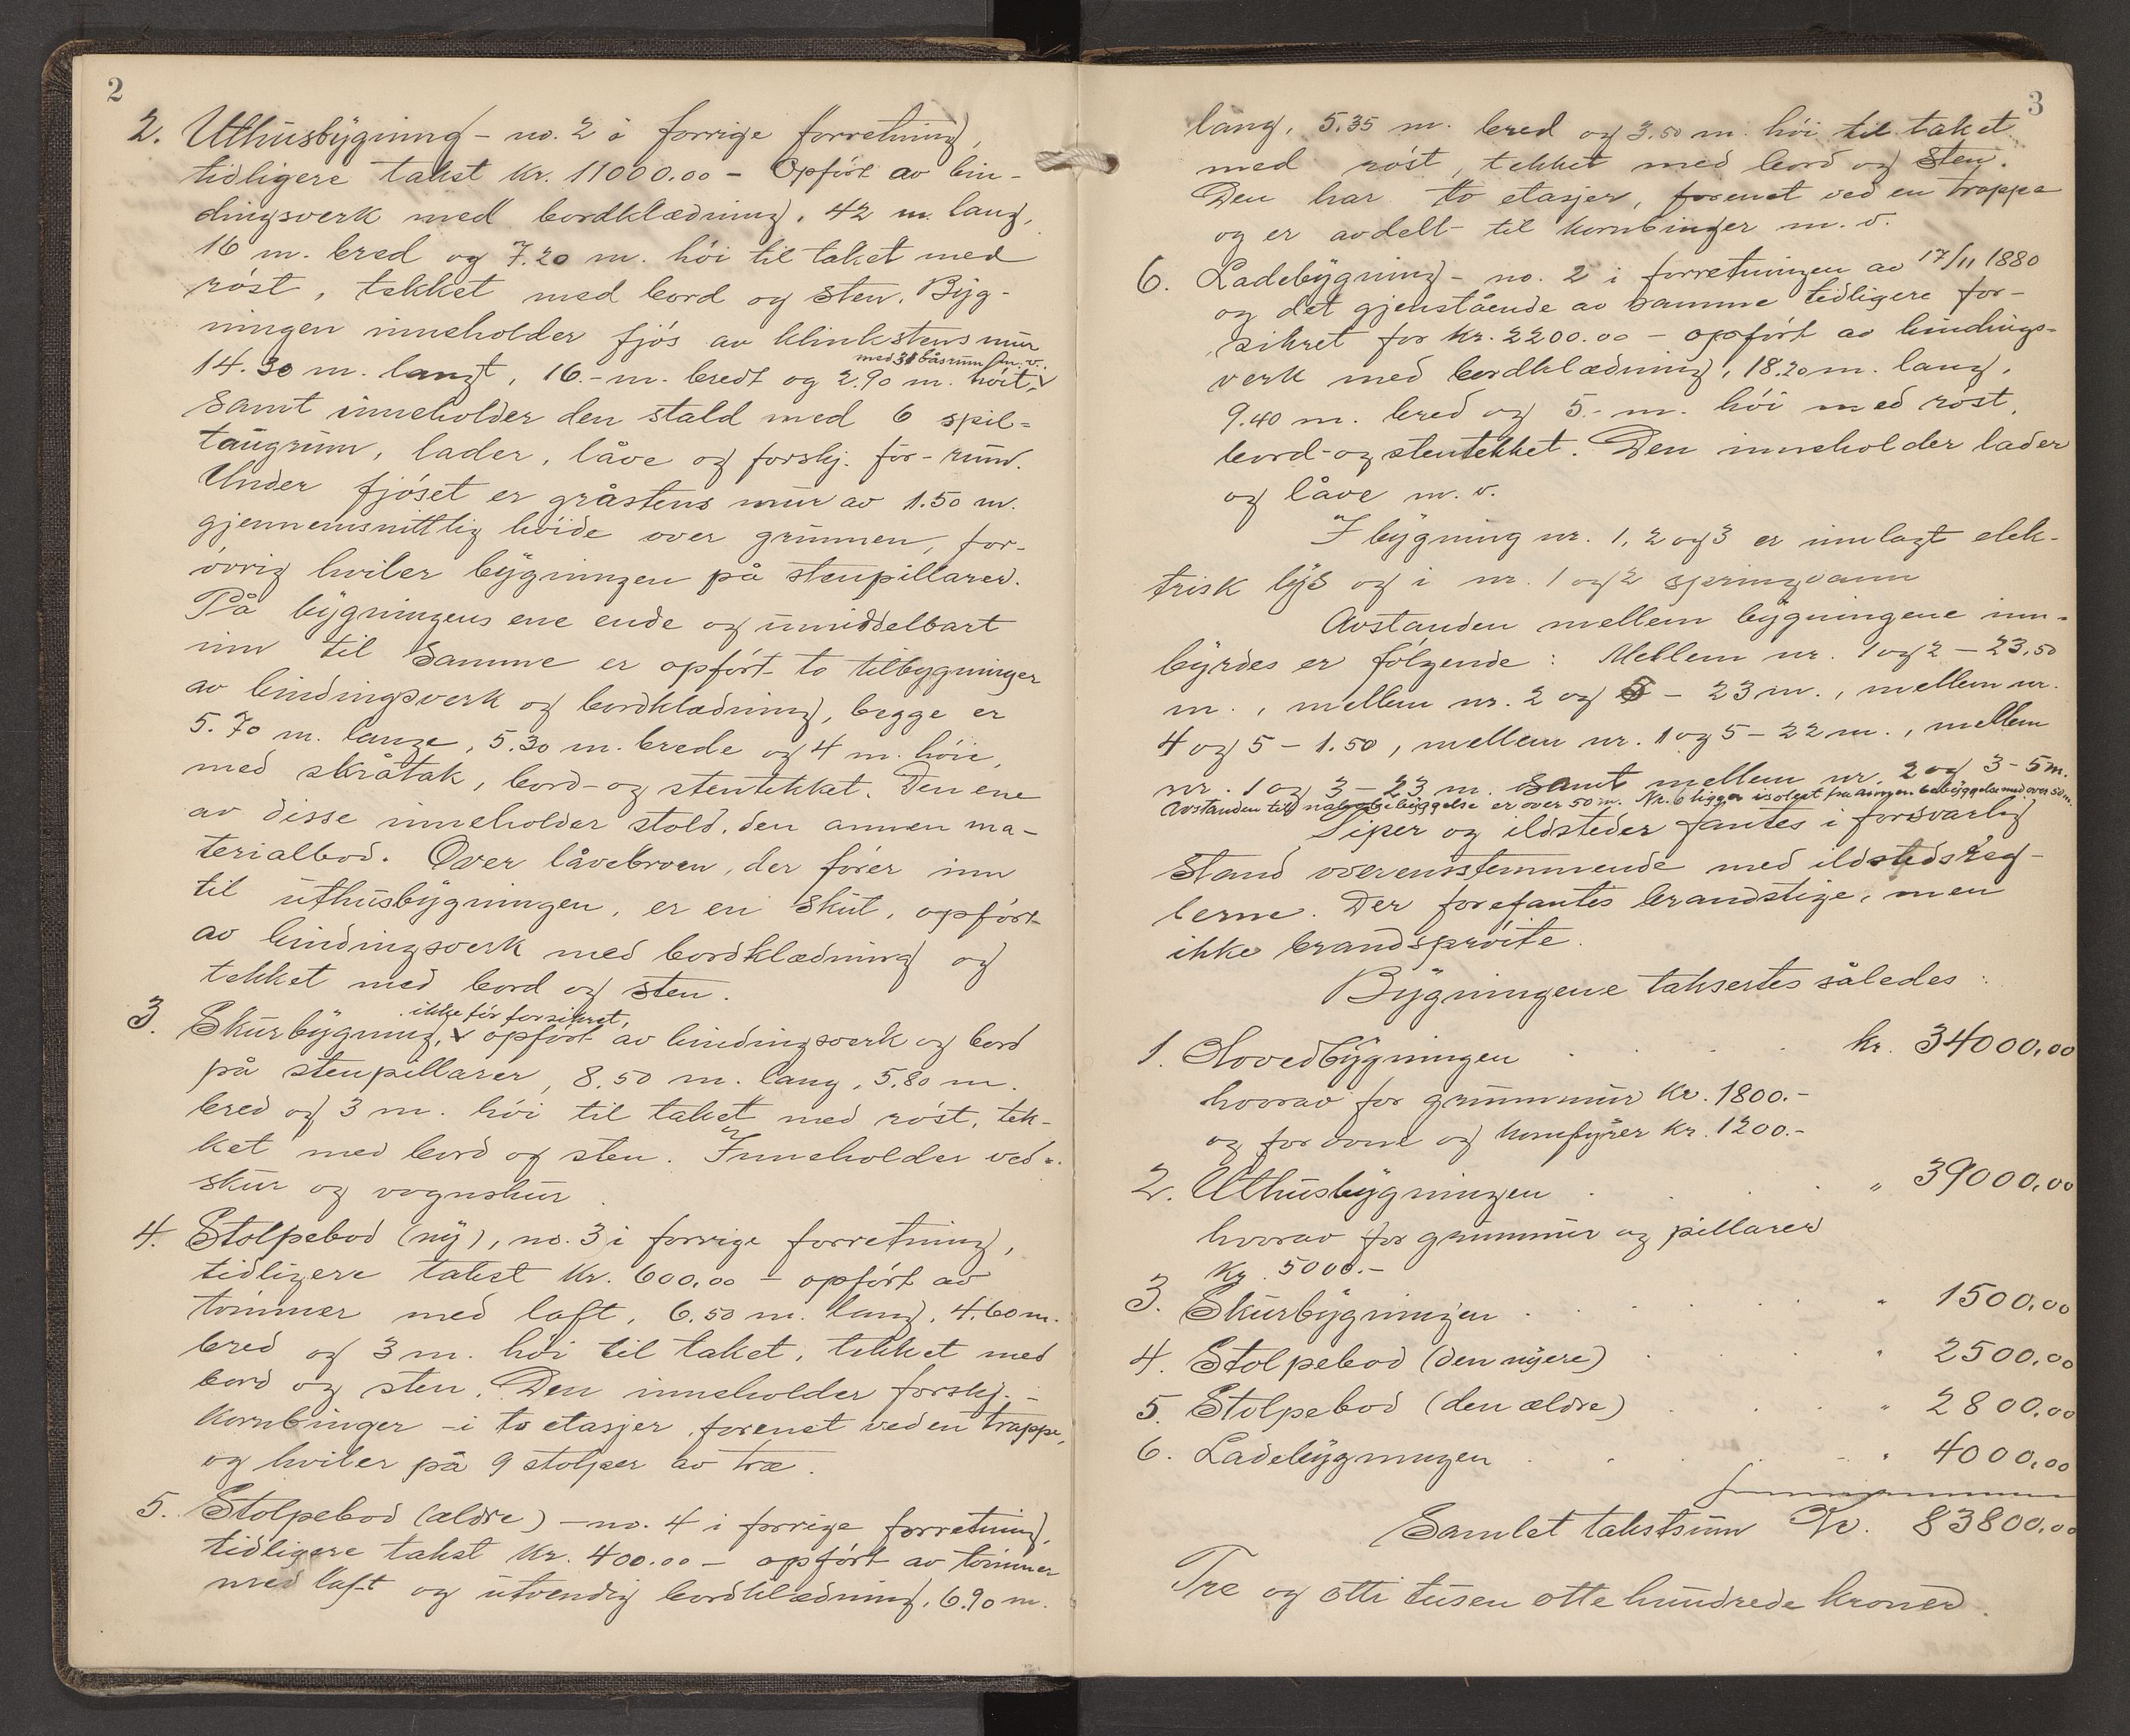 2
2. Uthusbygning - no. 2 i forrige forretning,
tidligere takst kr. 11000.00 - Opført av bin-
dingsverk med bordklædning, 42 m. lang,
16 m. bred og 7.20 m. høi til taket med
røst, tekket med bord og sten. Byg-
ningen inneholder fjøs av klinkstensmur
med 31 båsrum m.v.
14.30 m. langt, 16.- m. bredt og 2.90 m. høit,
samt inneholder den stald med 6 spil=
taugrum, lader, låve og forskj. for-rum.
Under fjøset er gråstens mur av 1.50 m.
gjennemsnittlig høide over grunnen, for-
øvrig hviler bygningen på stenpillarer.
På bygningens ene ende og umiddelbart
inn til samme er opført to tilbygninger
av bindingsverk og bordklædning, begge er
5.70 m. lange, 5.30 m. brede og 4 m. høie,
med skråtak, bord- og stentekket. Den ene
av disse inneholder stald, den annen ma-
terialbod. Over låvebroen, der fører inn
til uthusbygningen, er en skut, opført
av bindingsverk med bordklædning og
tekket med bord og sten.
ikke før forsikret,
3. Skurbygning, opført av bindingsverk og bord
på stenpillarer, 8.50 m. lang, 5.80 m.
bred og 3 m. høi til taket med røst, tek-
ket med bord og sten. Inneholder ved-
skur og vognskur.
4. Stolpebod (ny), no. 3 i forrige forretning,
tidligere takst kr. 600.00 - opført av
tømmer med laft, 6.50 m. lang, 4.60 m.
bred og 3 m. høi til taket, tekket med
bord og sten. Den inneholder forskj. -
kornbinger - i to etasjer, forenet ved en trappe,
og hviler på 9 stolper av træ.
5. Stolpebod (ældre) - no. 4 i forrige forretning,
tidligere takst kr. 400.00 - opført av tømmer
med laft og utvendig bordklædning, 6.90 m.
3
lang, 5.35 m. bred og 3.50 m. høi til taket
med røst, tekket med bord og sten.
Den har to etasjer, forenet ved en trappe
og er avdelt til kornbinger m.v.
6. Ladebygning - no. 2 i forretningen av 17/11 1880
og det gjenstående av samme tidligere for-
sikret for kr. 2200.00 - opført av bindings-
verk med bordklædning, 18.20 m. lang,
9.40 m. bred og 5.- m. høi med røst,
bord- og stentekket. Den inneholder lader
og låve m.v.
I bygning nr. 1, 2 og 3 er innlagt elek-
trisk lys og i nr. 1 og 2 springvann
Avstanden mellem bygningene inn-
byrdes er følgende: Mellem nr. 1 og 2 - 23.50
m., mellem nr. 2 og 5 - 23 m., mellem nr.
4 og 5 - 1.50, mellem nr. 1 og 5 - 22 m., mellem
nr. 1 og 3 - 23 m. samt mellem nr. 2 og 3 - 5 m.
Avstanden til nabobebyggelse er over 50 m. Nr. 6 ligger isolert fra annen bebyggelse med over 50 m.
Piper og ildsteder fantes i forsvarlig
stand overensstemmende med ildstedsreg-
lerne. Der forefantes brandstige, men
ikke brandsprøite.
Bygningene taksertes således:
1. Hovedbygningen . . . . kr. 34000,00
hvorav for grunnmur kr. 1800.-
og for ovne og komfyrer kr. 1200.-
2. Uthusbygningen . . . . " 39000,00
hvorav for grunnmur og pillarer
kr. 5000.-
3. Skurbygningen . . . . " 1500,00
4. Stolpebod (den nyere) . . . " 2500,00
5. Stolpebod (den ældre) . . . " 2800,00
6. Ladebygningen . . . . " 4000,00
Samlet takstsum Kr. 83800,00
Tre og otti tusen otte hundrede kroner.